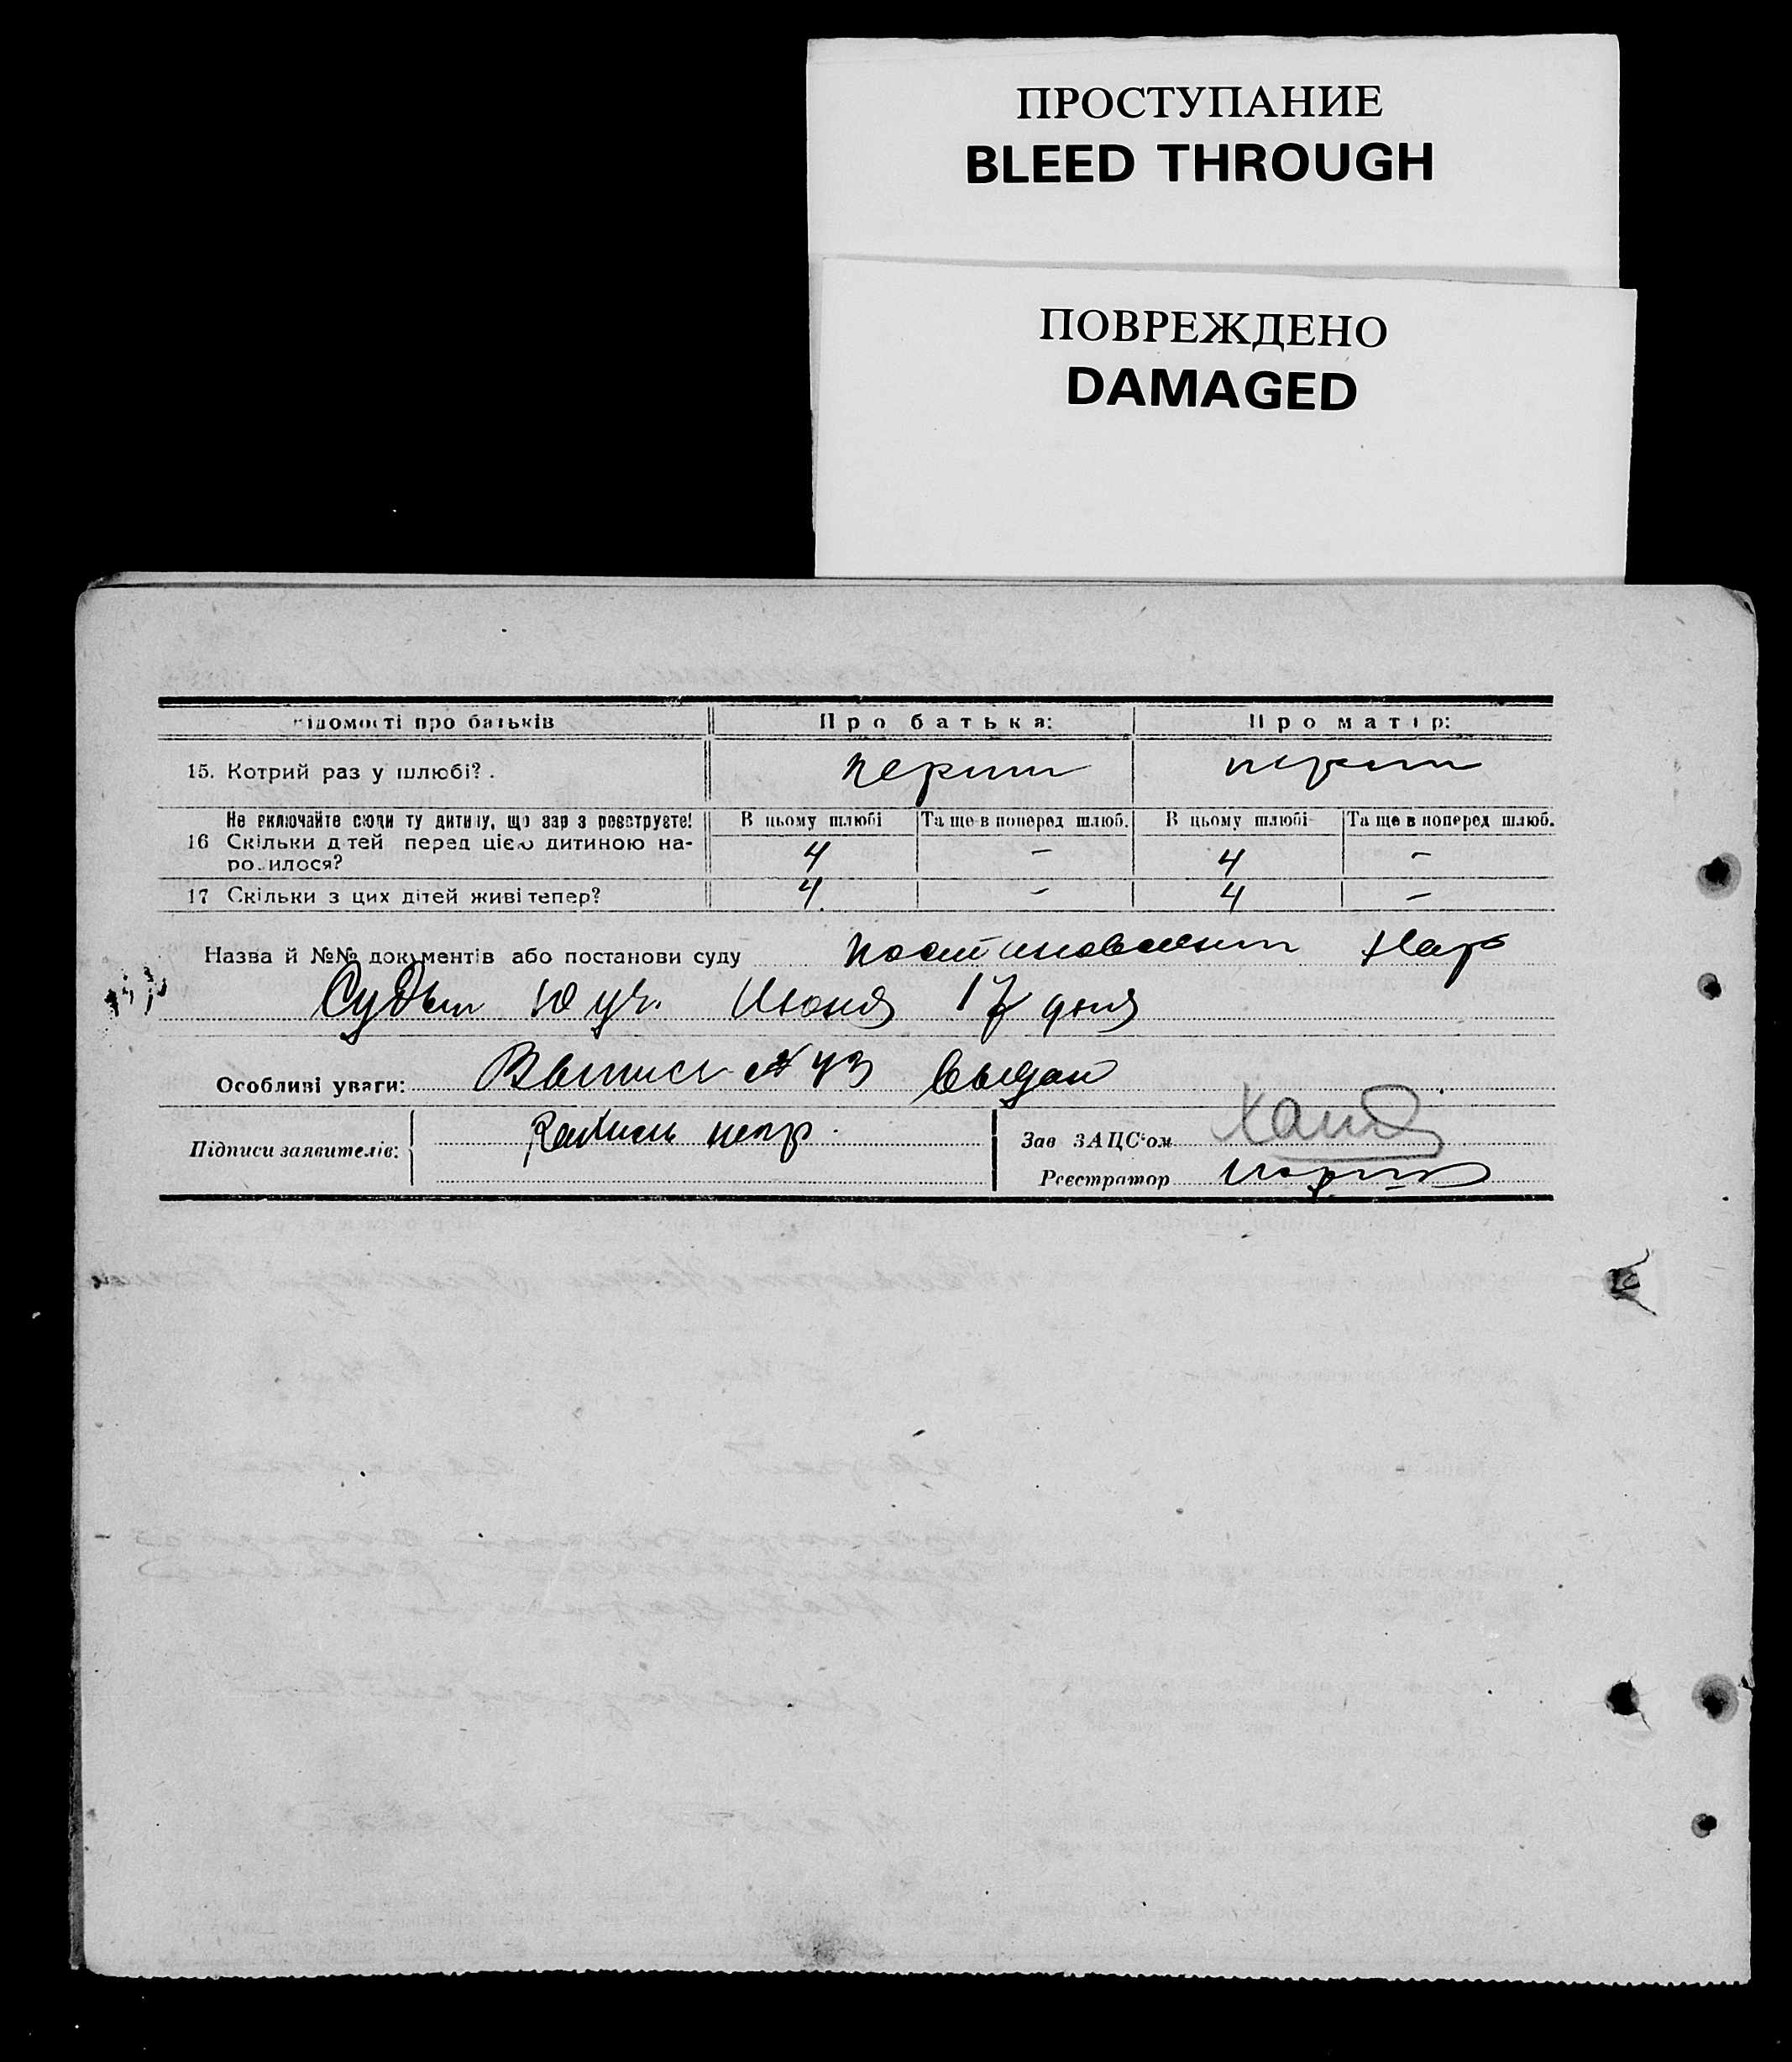 ПРОСТУПАНИЕ
BLEED THROUGH
ПОВРЕЖДЕНО
DAMAGED
ідомості про батьків Про батька: Про матір:
15. Котрий раз у шлюбі? . перши перши
Не включайте сюди ту дитину, що зар з реєструєте! В цьому шлюбі Та ще в поперед шлюб. В цьому шлюбі Та ще в поперед шлюб.
16 Скільки дтей перед цією дитиною на-
ро.илося? 4 – 4 –
17 Скільки з цих дітей живі тепер? 4 – 4 –
Назва й №№ документів або постанови суду Нар
Судьи 10 уч. Июня 17 дня
Особливі уваги: Выпись № 43 выдан
Підписи заявителів:
Зав ЗАЦС'ом
Реєстратор